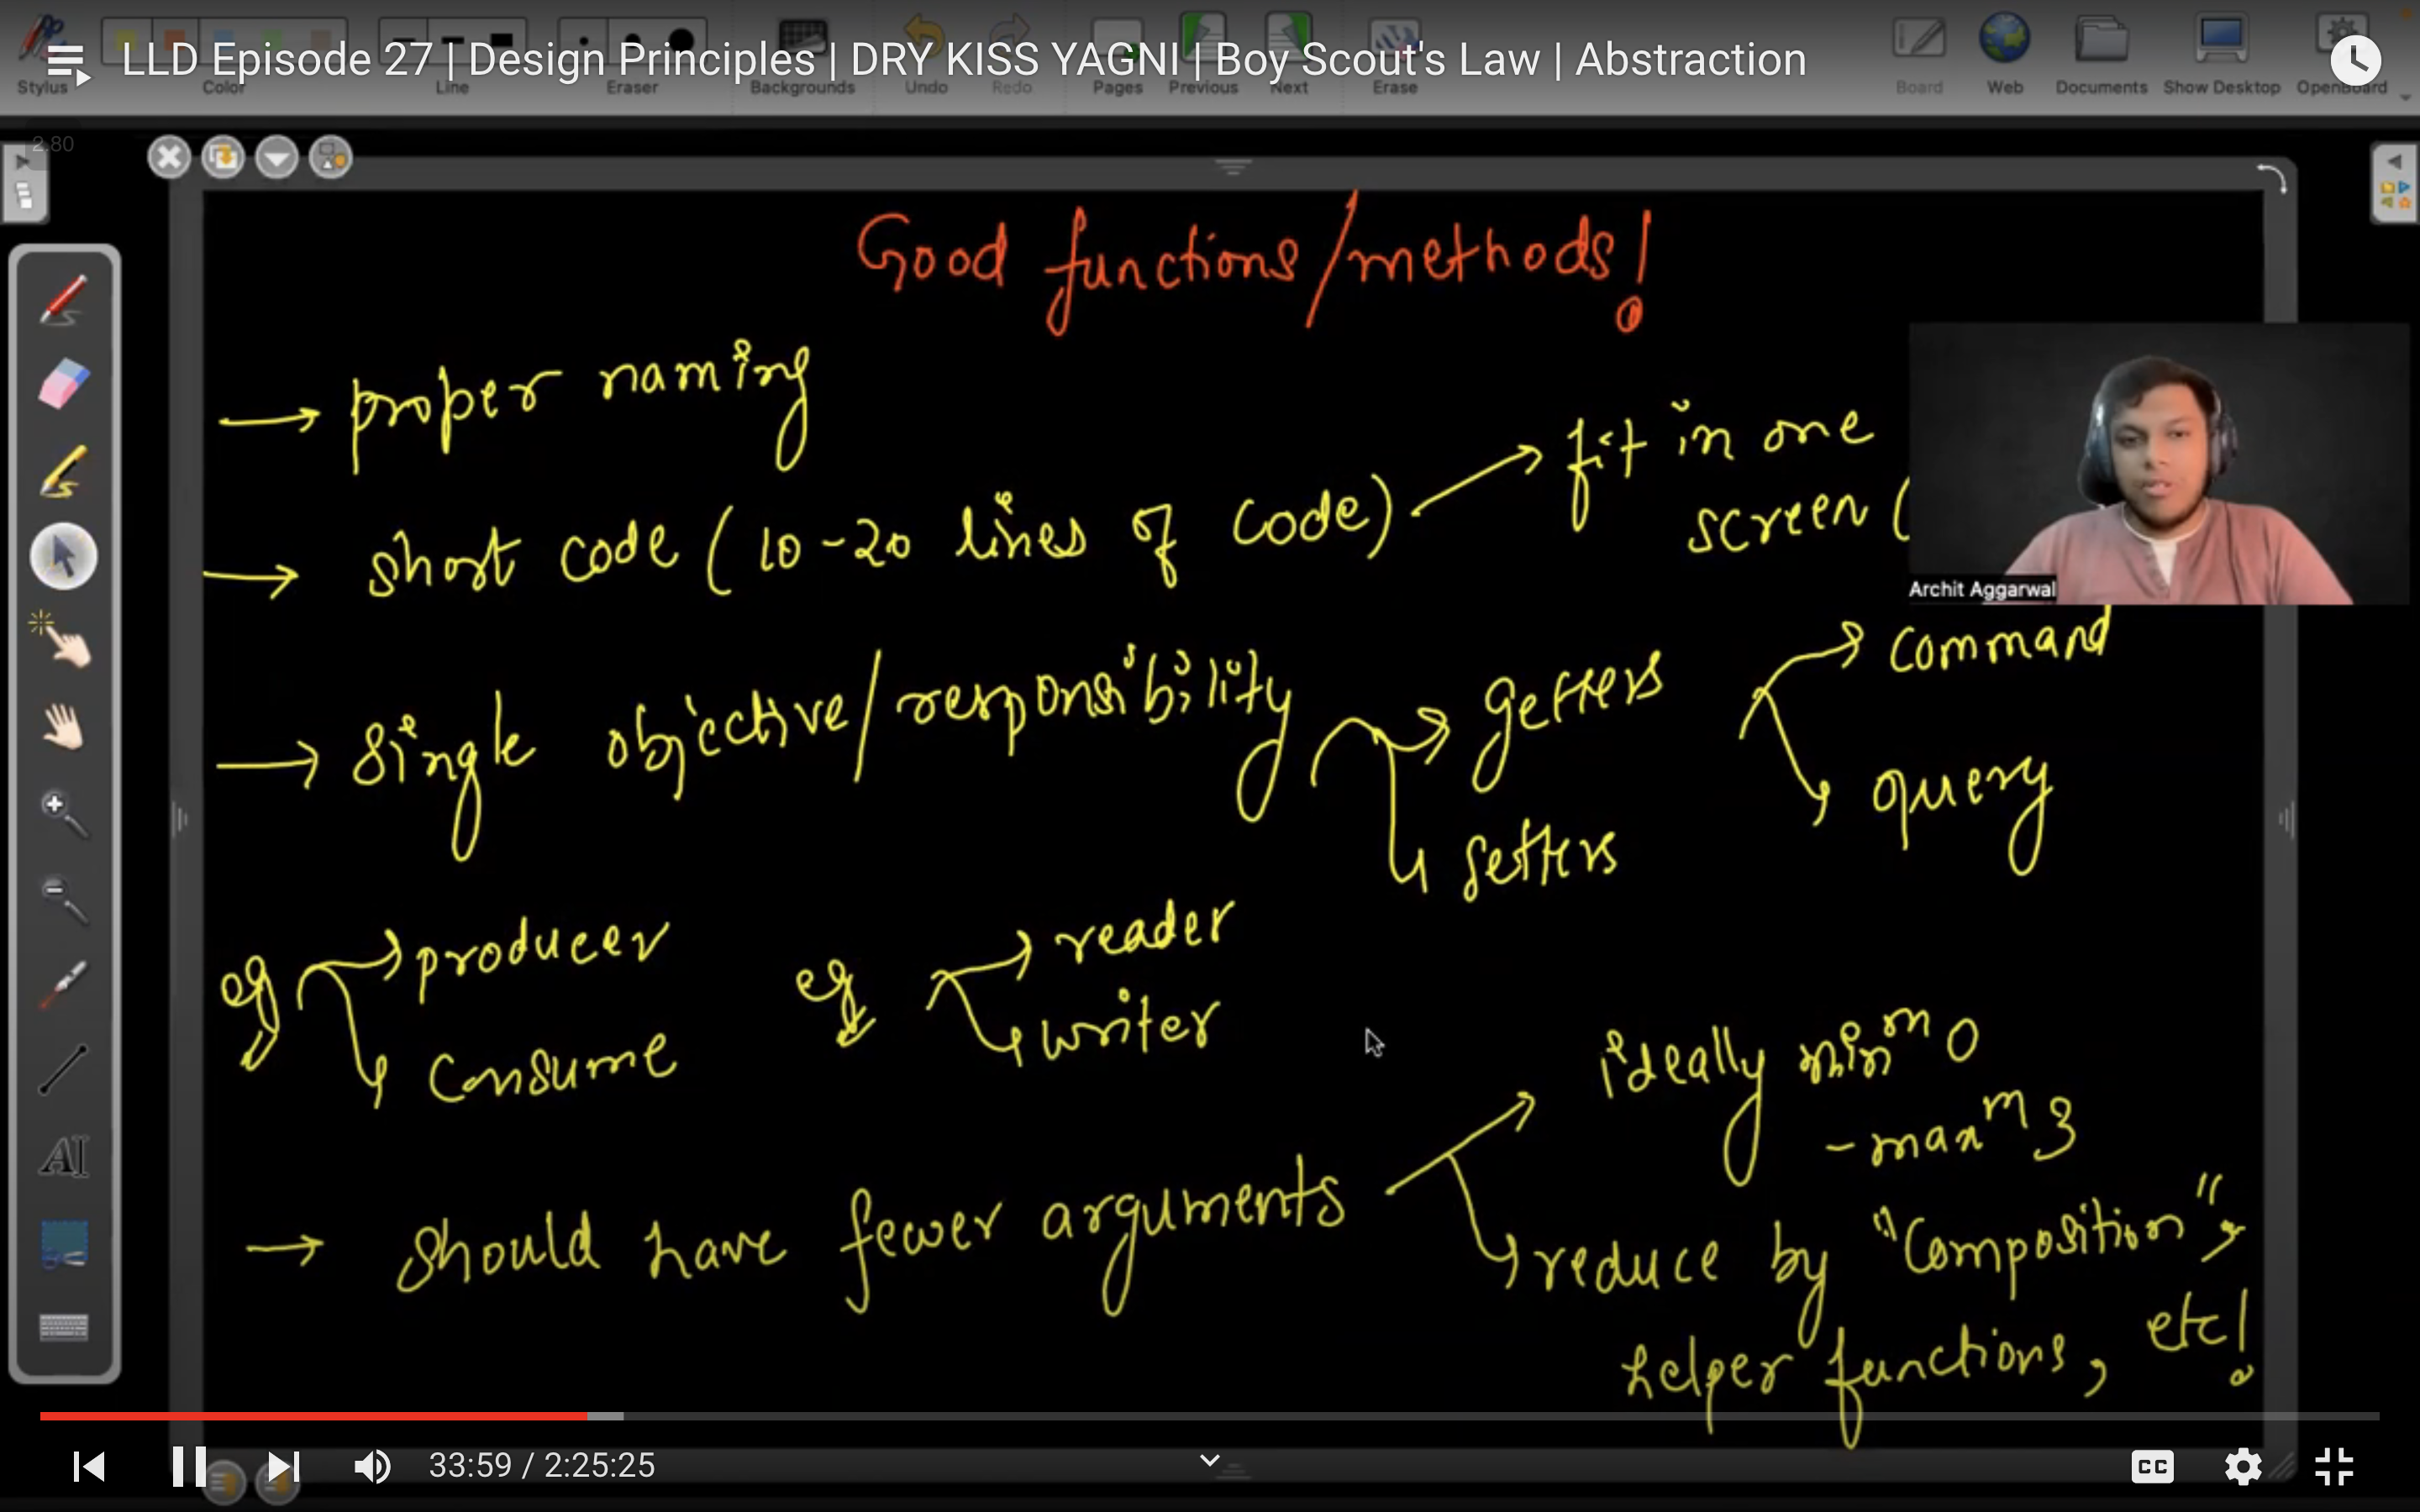 LLD Episode 27 | Design Principles | DRY KISS YAGNI | Boy Scout's Law | Abstraction
Stylus Color Line Eraser Backgrounds Undo Redo Pages Previous Next Erase Board Web Documents Show Desktop OpenBoard
2.80
Good functions/methods!
→ proper naming
→ short code (10-20 lines of code) → fit in one
screen (
Archit Aggarwal
→ Single objective/responsibility → getters
setters
command
query
eg → producer
consume
eg → reader
writer
→ should have fewer arguments → ideally minᵐ 0
- maxᵐ 3
reduce by "Composition",
helper functions, etc!
AI
33:59 / 2:25:25
CC